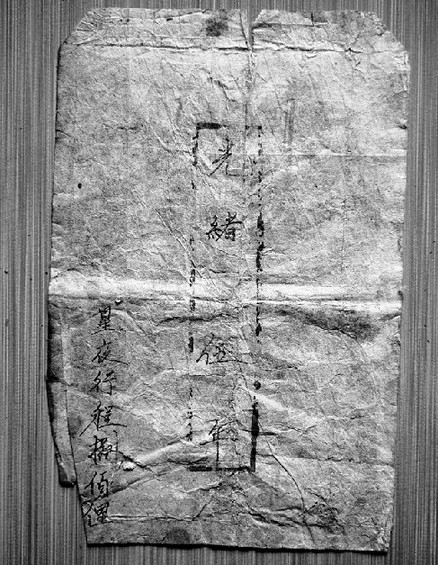 光緒伍年
星夜行程捌佰狸